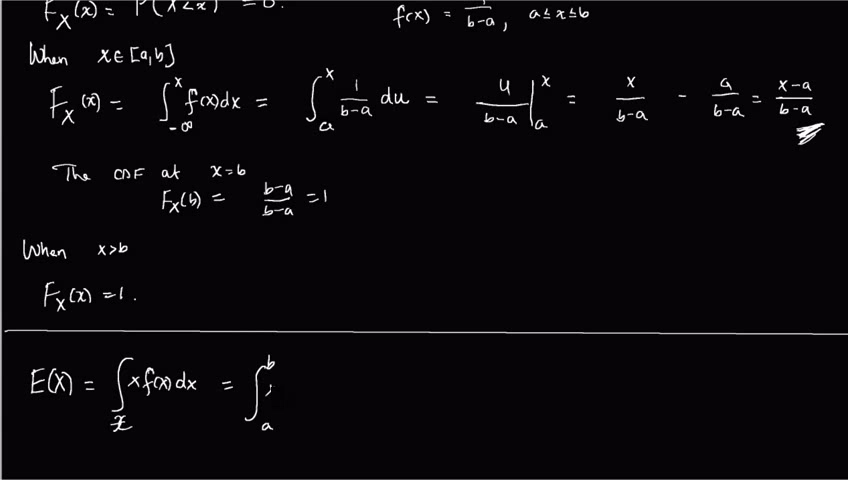 F_X(x) = P(X<x) = 0.
f(x) = 1/(b-a), a≤x≤b
When x∈[a,b]
F_X(x) = ∫_{-∞}^{x} f(x)dx = ∫_{a}^{x} 1/(b-a) du = u/(b-a) |_{a}^{x} = x/(b-a) - a/(b-a) = (x-a)/(b-a)
The CDF at x=b
F_X(b) = (b-a)/(b-a) = 1
When x>b
F_X(x) = 1.
E(X) = ∫_{x} x f(x) dx = ∫_{a}^{b}